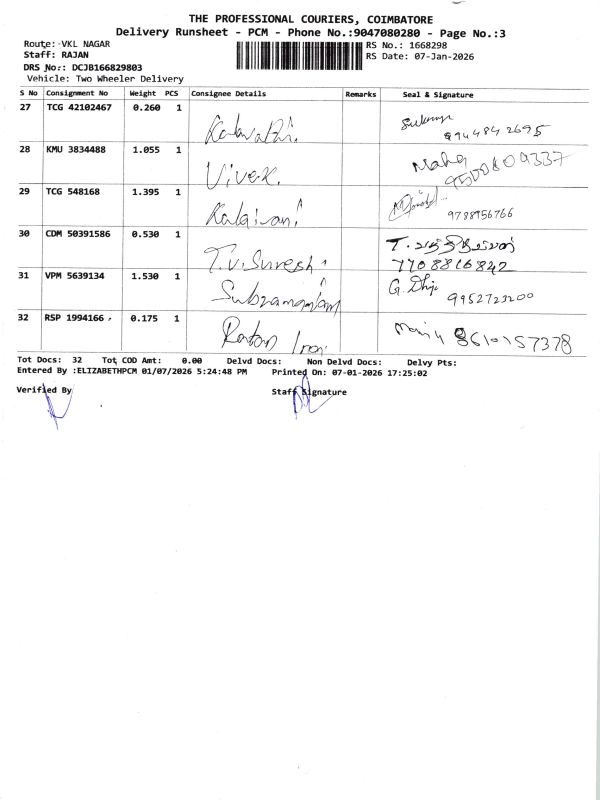 THE PROFESSIONAL COURIERS, COIMBATORE
Delivery Runsheet - PCM - Phone No.:9047080280 - Page No.:3
Route: VKL NAGAR
RS No.: 1668298
Staff: RAJAN
RS Date: 07-Jan-2026
DRS No:: DCJB166829803
Vehicle: Two Wheeler Delivery
S No Consignment No Weight PCS Consignee Details Remarks Seal & Signature
27 TCG 42102467 0.260 1 Kalavathi.
28 KMU 3834488 1.055 1 Vivek. Maha
29 TCG 548168 1.395 1 Kalaivani 9788956766
30 CDM 50391586 0.530 1 T.V. Suresh
7708816842
31 VPM 5639134 1.530 1 Subramaniam G. 9952723200
32 RSP 1994166 0.175 1 8610157378
Tot Docs: 32 Tot COD Amt: 0.00 Delvd Docs: Non Delvd Docs: Delvy Pts:
Entered By :ELIZABETHPCM 01/07/2026 5:24:48 PM Printed On: 07-01-2026 17:25:02
Verified By Staff Signature